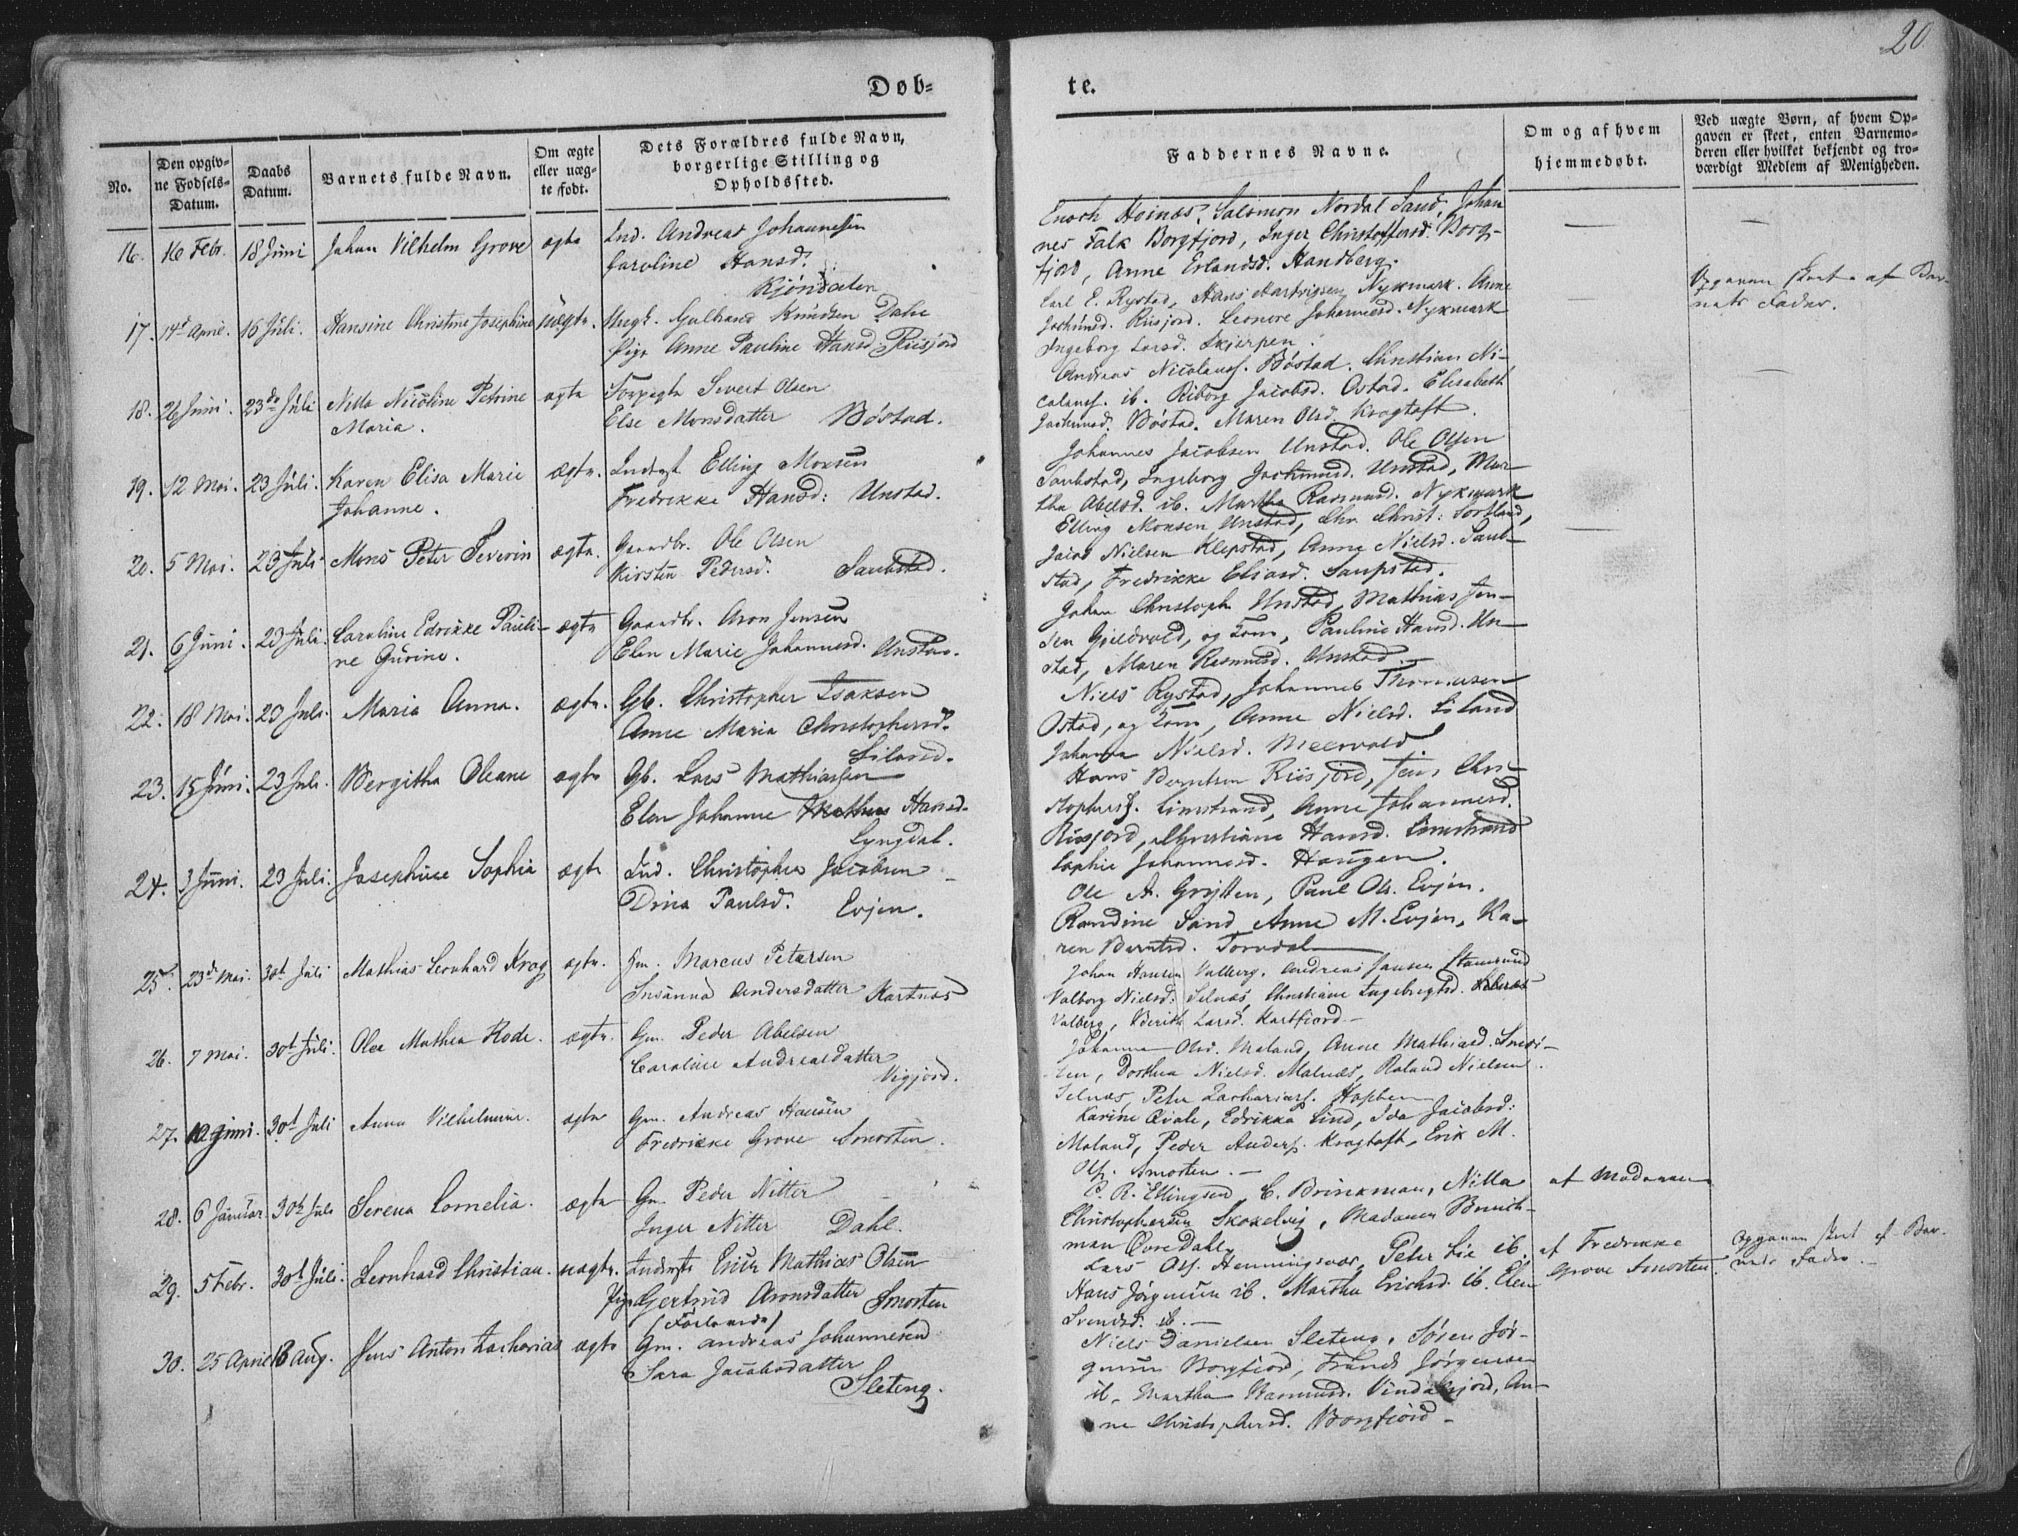 20
Døb-
te.
No.
Den opgiv-
ne Fødsels-
Datum.
Daabs
Datum.
Barnets fulde Navn.
Om ægte
eller uæg-
te født.
Dets Forældres fulde Navn,
borgerlige Stilling og
Opholdssted.
Faddernes Navne.
Om og af hvem
hjemmedøbt.
Ved uægte Børn, af hvem Op-
gaven er skeet, enten Barnemo-
deren eller hvilket bekjendt og tro-
værdigt Medlem af Menigheden.
16. 16 Febr. 18 Juni Johan Vilhelm Grove ægte Ind. Andreas Johannesen
Caroline Hansd.
Kjøndalen
Enoch Hoinæs, Salomon Nordal Sand, Johan
nes Falk Borgfjord, Inger Christoffersd. Borg-
fjord, Anne Erlandsd. Handberg.
17. 14de April. 16 Juli. Hansine Christine Josephine uægte. Ungk. Gulbrand Knudsen Dahl
Pige Anne Pauline Hansd. Riisjord
Carl E. Rystad, Hans Hartvigsen Nykmark. Anne
Jochumsd. Riisjord. Leonore Johannesd. Nykmark
Ingeborg Larsd. Skjerpen.
Opgaven skeet af Bar-
nets Fader.
18. 26 Juni. 23de Juli Nilla Nicoline Petrine ægte
Maria.
Sivert Olsen
Else Monsdatter Bøstad.
Andreas Nicolaus. Bøstad. Christian Ni-
colaus. ib. Riborg Jacobsd. Ostad. Elisabeth
Jochumsd. Bøstad. Maren Olsd. Kragtoft.
19. 12 Mai. 23 Juli. Karen Elisa Marie ægte. Inderst Elling Monsen
Johanne.
Fredrikke Hansd: Unstad.
Johannes Jacobsen Unstad. Ole Olsen
Saubstad, Ingeborg Jochumsd. Unstad, Mar-
tha Abelsd. ib. Martha Rasmusd. Nykmark
20. 5 Mai. 23 Juli. Mons Peter Severin ægte. Gaardbr. Ole Olsen
Kirsten Pedersd. Saubstad.
Elling Monsen Unstad, Chr. Christ: Sortland,
Jacob Nielsen Klepstad, Anne Nielsd. Saub-
stad, Fredrikke Eliasd. Saupstad.
21. 6 Juni. 23 Juli. Caroline Edrikke Pauli- ægte Gaardbr. Aron Jensen
ne Gurine.
Elen Marie Johannesd. Unstad.
Johan Christoph Unstad, Mathias Jen-
sen Gjeldvold, og Kone, Pauline Hansd. Un-
stad, Maren Rasmusd. Unstad.
22. 18 Mai. 23 Juli. Maria Anna. ægte. Gb. Christopher Isaksen
Anne Maria Christophersd.
Liland.
Niels Rystad, Johannes Thomæsen
Ostad, og Kone, Anne Nielsd. Liland
Johanna Nielsd. Meervold.
23. 15 Juni. 23 Juli. Bergitha Oleane ægte Gb. Lars Mathiassen
Elen Johanne Hansd.
Lyngdal.
Hans Berntsen Riisjord, Jens Chri-
stophers. Limstrand, Anne Johannesd.
Riisjord, Christiane Hansd. Limstrand
Sophie Johannesd. Haugen.
24. 3 Juni. 23 Juli. Josephine Sophia ægte Ind. Christopher Jacobsen
Dina Paulsd. Evjen.
Ole A. Grytten, Paul Ols. Evjen.
Randine Sand, Anne M. Evjen, Ka-
ren Berntsd. Torvdal
25. 23de Mai. 30t Juli Mathias Leonhard Krog ægte. Gm. Marcus Petersen
Susanna Andersdatter Hartnæs
Johan Hansen Valberg. Andreas Jansen Stamsund
Valborg Nielsd. Selnæs, Christiane Ingebrigtsd.
Valberg, Berith Larsd. Hartfjord
26. 7 Mai. 30t Juli. Olea Mathea Rode. ægte. Gm. Peder Abelsen
Caroline Andreasdatter
Vigjord.
Johanna Olsd. Maland, Anne Mathiasd. Smor-
ten, Dorthea Nielsd. Malnæs, Roland Nielsen
Selnæs, Peter Zachariass. Hopben
27. 10 Juni. 30t Juli Anna Vilhelmine. ægte Gm. Andreas Hansen
Fredrikke Grove Smorten.
Karine Qvale, Edrikke Lind, Ida Jacobsd:
Maland, Peder Anders. Kragtoft, Erik M.
Ols. Smorten.
28. 6 Januar. 30te Juli Serena Cornelia. ægte Gm Peder Nitter
Inger Nitter Dahl.
C. R. Ellingsen, C. Brinkman, Nilla
Christophersen Skokelvig, Madamen Brinch-
man Øvre Dahl.
af Moderen
29. 5 Febr. 30t Juli. Leonhard Christian. uægte. Inderste Erich Mathias Olsen
Pige Gertrud Aronsdatter Smorten
(Forlovede)
Lars Ols. Henningsvær, Peter Lie ib.
Hans Jørgensen ib. Martha Erichsd. ib. Elen
Svendsd. ib.
af Fredrikke
Grove Smorten.
Opgaven skeet af Bar-
nets Fader.
30. 25 April 13 Aug. Jens Anton Zacharias ægte Gm. Andreas Johannesen
Sara Jacobsdatter
Sleteng.
Niels Danielsen Sleteng. Søren Jør-
gensen Borgfjord, Trunds Jørgensen
ib. Martha Rasmusd. Vindskjord, An-
ne Christophersd. Borgfjord